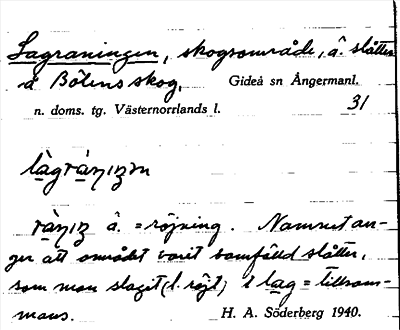 Lagraningen, skogsområde, å. slåtten
å Bölens skog. Gideå sn Ångermanl.
n. doms. tg. Västernorrlands l. 31
làgràŋıʒm
ràŋıʒ å. = röjning. Namnet an-
ger att området varit samfälld slåtter,
som man slagit (l. röjt) i lag = tillsam-
mans. H. A. Söderberg 1940.